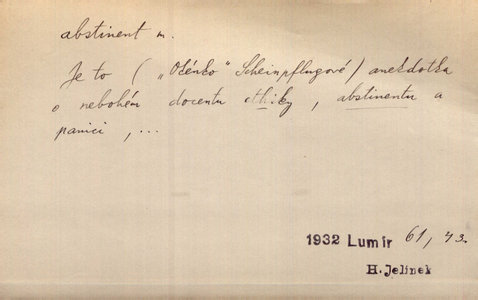 abstinent m.
Je to ( „Okénko" Scheinpflugové) anekdotka
o nebohém docentu ethiky, abstinentu a
panici, ...
1932 Lumír 61, 43.
H. Jelínek